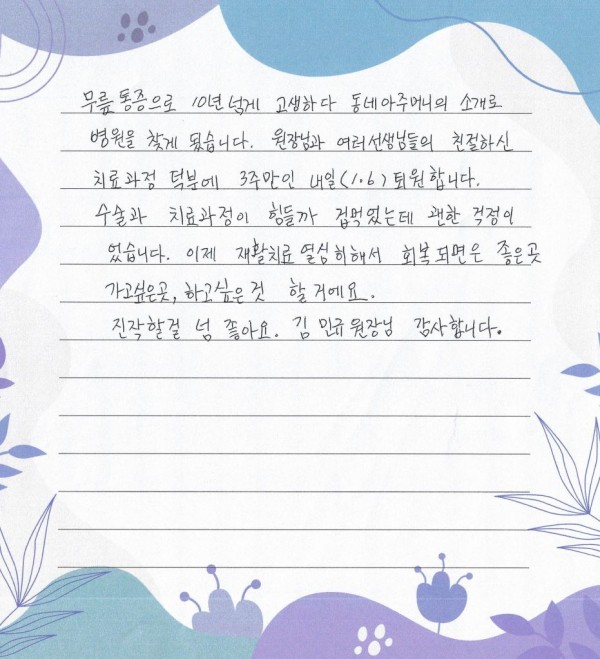 무릎통증으로 10년넘게 고생하다 동네아주머니의 소개로
병원을 찾게 됬습니다. 원장님과 여러선생님들의 친절하신
치료과정 덕분에 3주만인 내일(1.6)퇴원합니다.
수술과 치료과정이 힘들까 겁먹었는데 괜한 걱정이
었습니다. 이제 재활치료열심히해서 회복되면은 좋은곳
가고싶은곳, 하고싶은것 할거에요.
진작할걸 넘 좋아요. 김민규원장님 감사합니다.